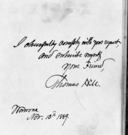 I cheerfully comply with your request,
and subscribe myself
Your Friend,
Thomas Hill
Nov. 13th 1889